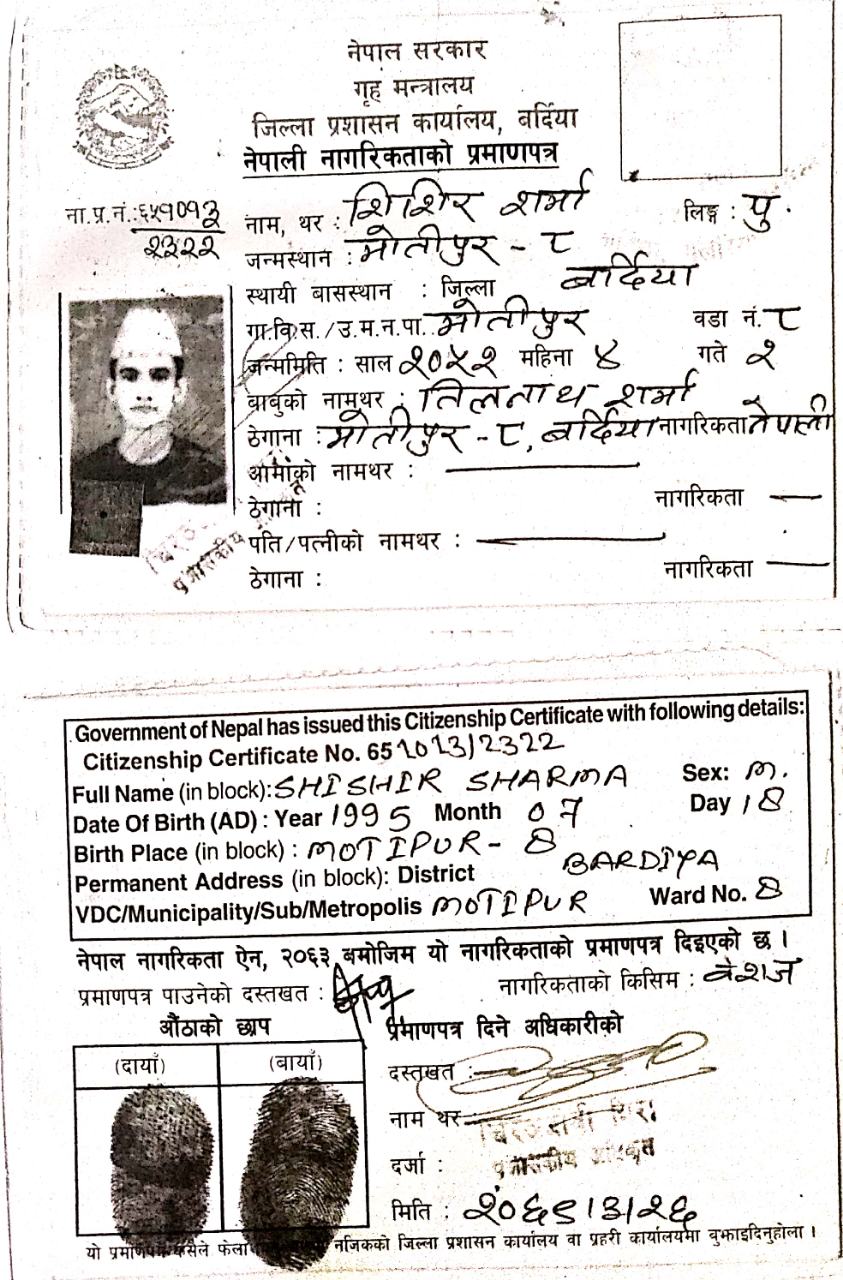 नेपाल सरकार
गृह मन्त्रालय
जिल्ला प्रशासन कार्यालय, बर्दिया
नेपाली नागरिकताको प्रमाणपत्र
ना.प्र.नं.:६५१०१३
२३२२
नाम, थर : शिशिर शर्मा लिङ्ग : पु.
जन्मस्थान : मोतीपुर - ८
स्थायी बासस्थान : जिल्ला बर्दिया
गा.वि.स./उ.म.न.पा. मोतीपुर वडा नं. ८
जन्ममिति : साल २०५२ महिना ४ गते २
बाबुको नामथर : तिलनाथ शर्मा
ठेगाना : मोतीपुर - ८, बर्दिया नागरिकता नेपाली
आमाको नामथर :
ठेगाना : नागरिकता
पति/पत्नीको नामथर :
ठेगाना : नागरिकता
Government of Nepal has issued this Citizenship Certificate with following details:
Citizenship Certificate No. 651013/2322
Full Name (in block): SHISHIR SHARMA Sex: M.
Date Of Birth (AD) : Year 1995 Month 07 Day 18
Birth Place (in block) : MOTIPUR - 8
Permanent Address (in block): District BARDIYA
VDC/Municipality/Sub/Metropolis MOTIPUR Ward No. 8
नेपाल नागरिकता ऐन, २०६३ बमोजिम यो नागरिकताको प्रमाणपत्र दिइएको छ ।
प्रमाणपत्र पाउनेको दस्तखत : नागरिकताको किसिम : वंशज
औंठाको छाप प्रमाणपत्र दिने अधिकारीको
(दायाँ) (बायाँ)
दस्तखत :
नाम थर
दर्जा : प्रशासकीय अधिकृत
मिति : २०६९।३।२६
यो प्रमाणपत्र कसैले फेला नजिकको जिल्ला प्रशासन कार्यालय वा प्रहरी कार्यालयमा बुझाइदिनुहोला ।